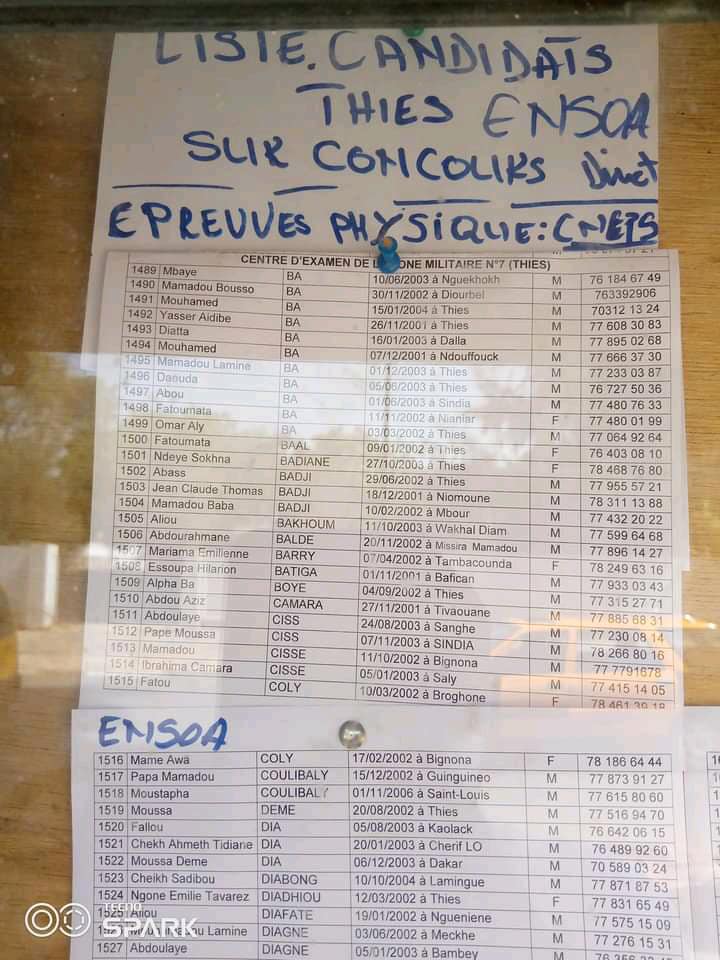 LISTE. CANDIDATS
THIES ENSOA
SUR CONCOURS Direct
EPREUVES PHYSIQUE: CNEPS
CENTRE D'EXAMEN DE LA ZONE MILITAIRE N°7 (THIES)
1489 Mbaye BA 10/06/2003 à Nguekhokh M 76 184 67 49
1490 Mamadou Bousso BA 30/11/2002 à Diourbel M 763392906
1491 Mouhamed BA 15/01/2004 à Thies M 70312 13 24
1492 Yasser Aidibe BA 26/11/2001 à Thies M 77 608 30 83
1493 Diatta BA 16/01/2003 à Dalla M 77 895 02 68
1494 Mouhamed BA 07/12/2001 à Ndouffouck M 77 666 37 30
1495 Mamadou Lamine BA 01/12/2003 à Thies M 77 233 03 87
1496 Daouda BA 05/06/2003 à Thies M 76 727 50 36
1497 Abou BA 01/06/2003 à Sindia M 77 480 76 33
1498 Fatoumata BA 11/11/2002 à Nianiar F 77 480 01 99
1499 Omar Aly BA 03/03/2002 à Thies M 77 064 92 64
1500 Fatoumata BAAL 09/01/2002 à Thies F 76 403 08 10
1501 Ndeye Sokhna BADIANE 27/10/2003 à Thies F 78 468 76 80
1502 Abass BADJI 29/06/2002 à Thies M 77 955 57 21
1503 Jean Claude Thomas BADJI 18/12/2001 à Niomoune M 78 311 13 88
1504 Mamadou Baba BADJI 10/02/2002 à Mbour M 77 432 20 22
1505 Aliou BAKHOUM 11/10/2003 à Wakhal Diam M 77 599 64 68
1506 Abdourahmane BALDE 20/11/2002 à Missira Mamadou M 77 896 14 27
1507 Mariama Emilienne BARRY 07/04/2002 à Tambacounda F 78 249 63 16
1508 Essoupa Hilarion BATIGA 01/11/2001 à Bafican M 77 933 03 43
1509 Alpha Ba BOYE 04/09/2002 à Thies M 77 315 27 71
1510 Abdou Aziz CAMARA 27/11/2001 à Tivaouane M 77 885 68 31
1511 Abdoulaye CISS 24/08/2003 à Sanghe M 77 230 08 14
1512 Pape Moussa CISS 07/11/2003 à SINDIA M 78 266 80 16
1513 Mamadou CISSE 11/10/2002 à Bignona M 77 7791678
1514 Ibrahima Camara CISSE 05/01/2003 à Saly M 77 415 14 05
1515 Fatou COLY 10/03/2002 à Broghone F 78 461 39 18
ENSOA
1516 Mame Awa COLY 17/02/2002 à Bignona F 78 186 64 44
1517 Papa Mamadou COULIBALY 15/12/2002 à Guinguineo M 77 873 91 27
1518 Moustapha COULIBALY 01/11/2006 à Saint-Louis M 77 615 80 60
1519 Moussa DEME 20/08/2002 à Thies M 77 516 94 70
1520 Fallou DIA 05/08/2003 à Kaolack M 76 642 06 15
1521 Chekh Ahmeth Tidiane DIA 20/01/2003 à Cherif LO M 76 489 92 60
1522 Moussa Deme DIA 06/12/2003 à Dakar M 70 589 03 24
1523 Cheikh Sadibou DIABONG 10/10/2004 à Lamingue M 77 871 87 53
1524 Ngone Emilie Tavarez DIADHIOU 12/03/2002 à Thies F 77 831 65 49
1525 Aliou DIAFATE 19/01/2002 à Ngueniene M 77 575 15 09
Lamine DIAGNE 03/06/2002 à Meckhe M 77 276 15 31
1527 Abdoulaye DIAGNE 05/01/2003 à Bambey M 76 356
TECNO
SPARK